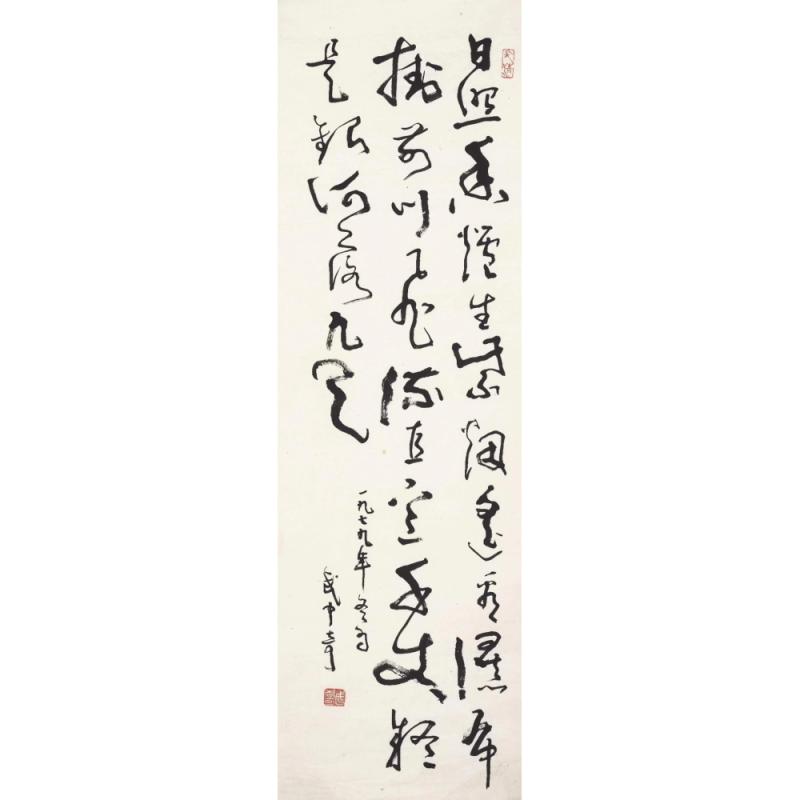 日照香爐生紫烟遙看瀑布
掛前川飛流直下三千丈疑
是銀河落九天
一九七九年冬月
武中奇